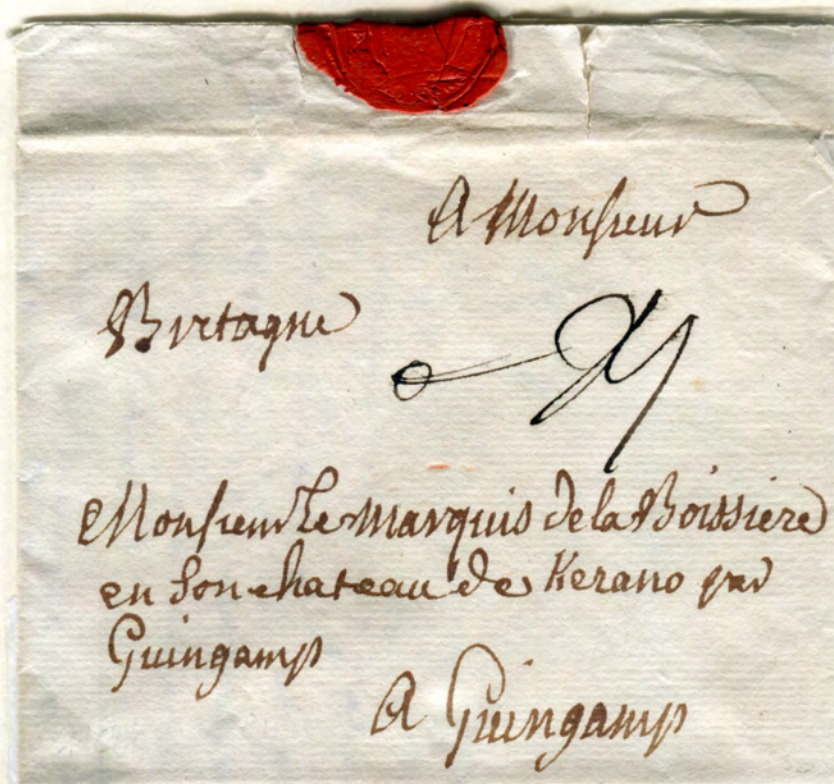 A Monsieur
Bretagne
Monsieur Le Marquis de la Boissiere
en Son chateau de Kerano par
Guingamp
A Guingamp